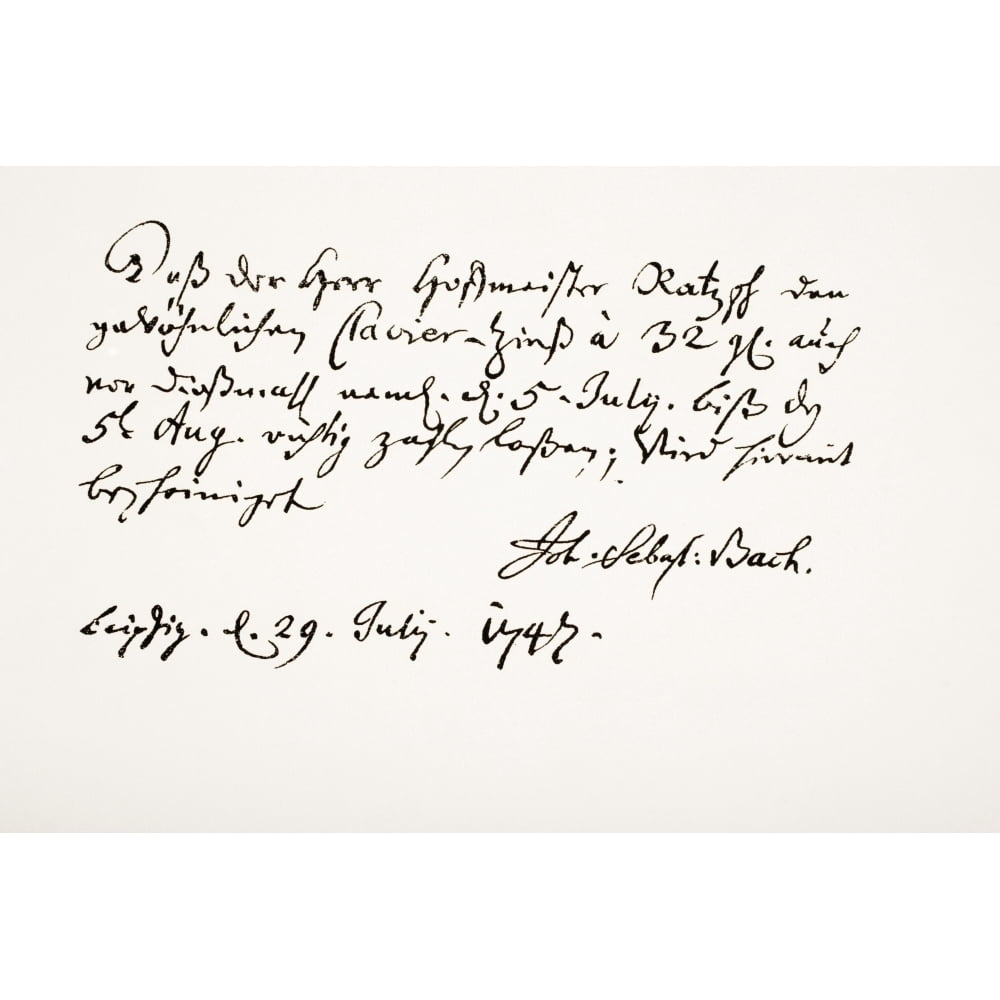 Daß der Herr Hoffmeister Ratzsch den
gewöhnlichen Clavier-Zinß à 32 gl. auch
vor dießmall neml. d. 5. July. biß den
5t Aug. richtig zahlen laßen; Wird hiermit
bescheiniget
Joh. Sebast: Bach.
Leipzig. d. 29. July. 1747.